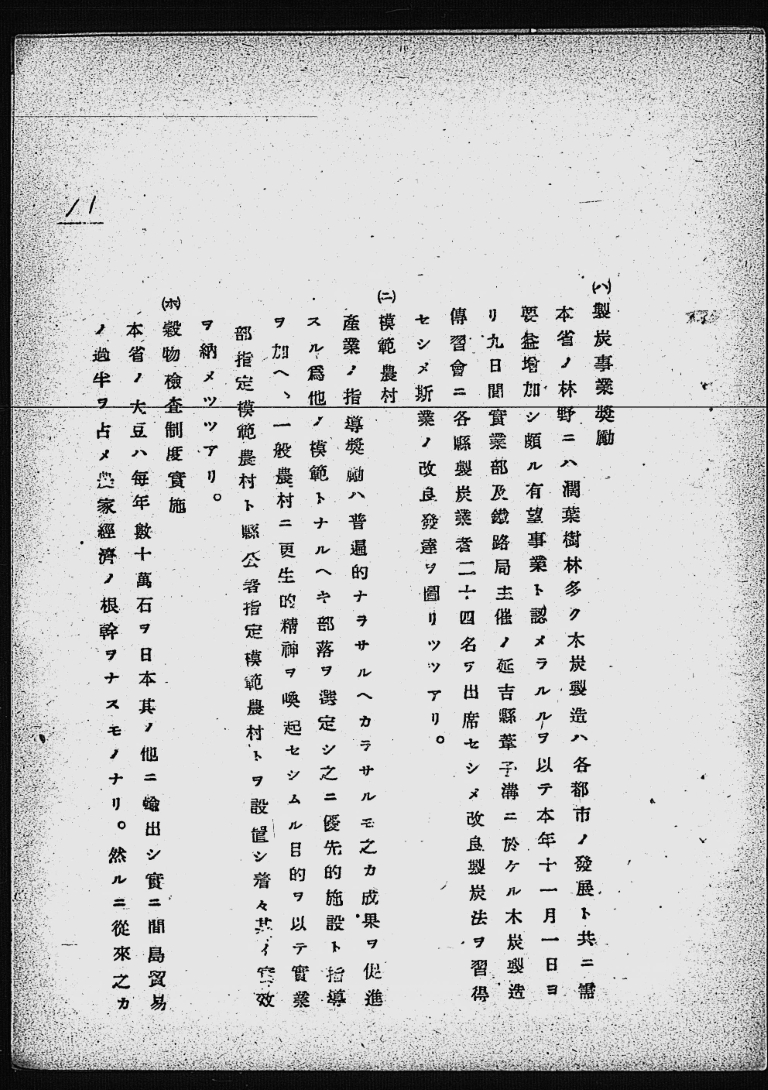 11
(ハ)製炭事業奬勵
本省ノ林野ニハ濶葉樹林多ク木炭製造ハ各都市ノ發展ト共ニ需
要益增加シ頗ル有望事業ト認メラルルヲ以テ本年十一月一日ヨ
リ九日間實業部及鐵路局主催ノ延吉縣葦子溝ニ於ケル木炭製造
傳習會ニ各縣製炭業者二十四名ヲ出席セシメ改良製炭法ヲ習得
セシメ斯業ノ改良發達ヲ圖リツツアリ。
(ニ)模範農村
產業ノ指導奬勵ハ普遍的ナラサルヘカラサルモ之カ成果ヲ促進
スル爲他ノ模範トナルヘキ部落ヲ選定シ之ニ優先的施設ト指導
ヲ加ヘ、一般農村ニ更生的精神ヲ喚起セシムル目的ヲ以テ實業
部指定模範農村ト縣公署指定模範農村トヲ設置シ着々其ノ實效
ヲ納メツツアリ。
(ホ)穀物檢査制度實施
本省ノ大豆ハ每年數十萬石ヲ日本其ノ他ニ輸出シ實ニ間島貿易
ノ過半ヲ占メ農家經濟ノ根幹ヲナスモノナリ。然ルニ從來之カ